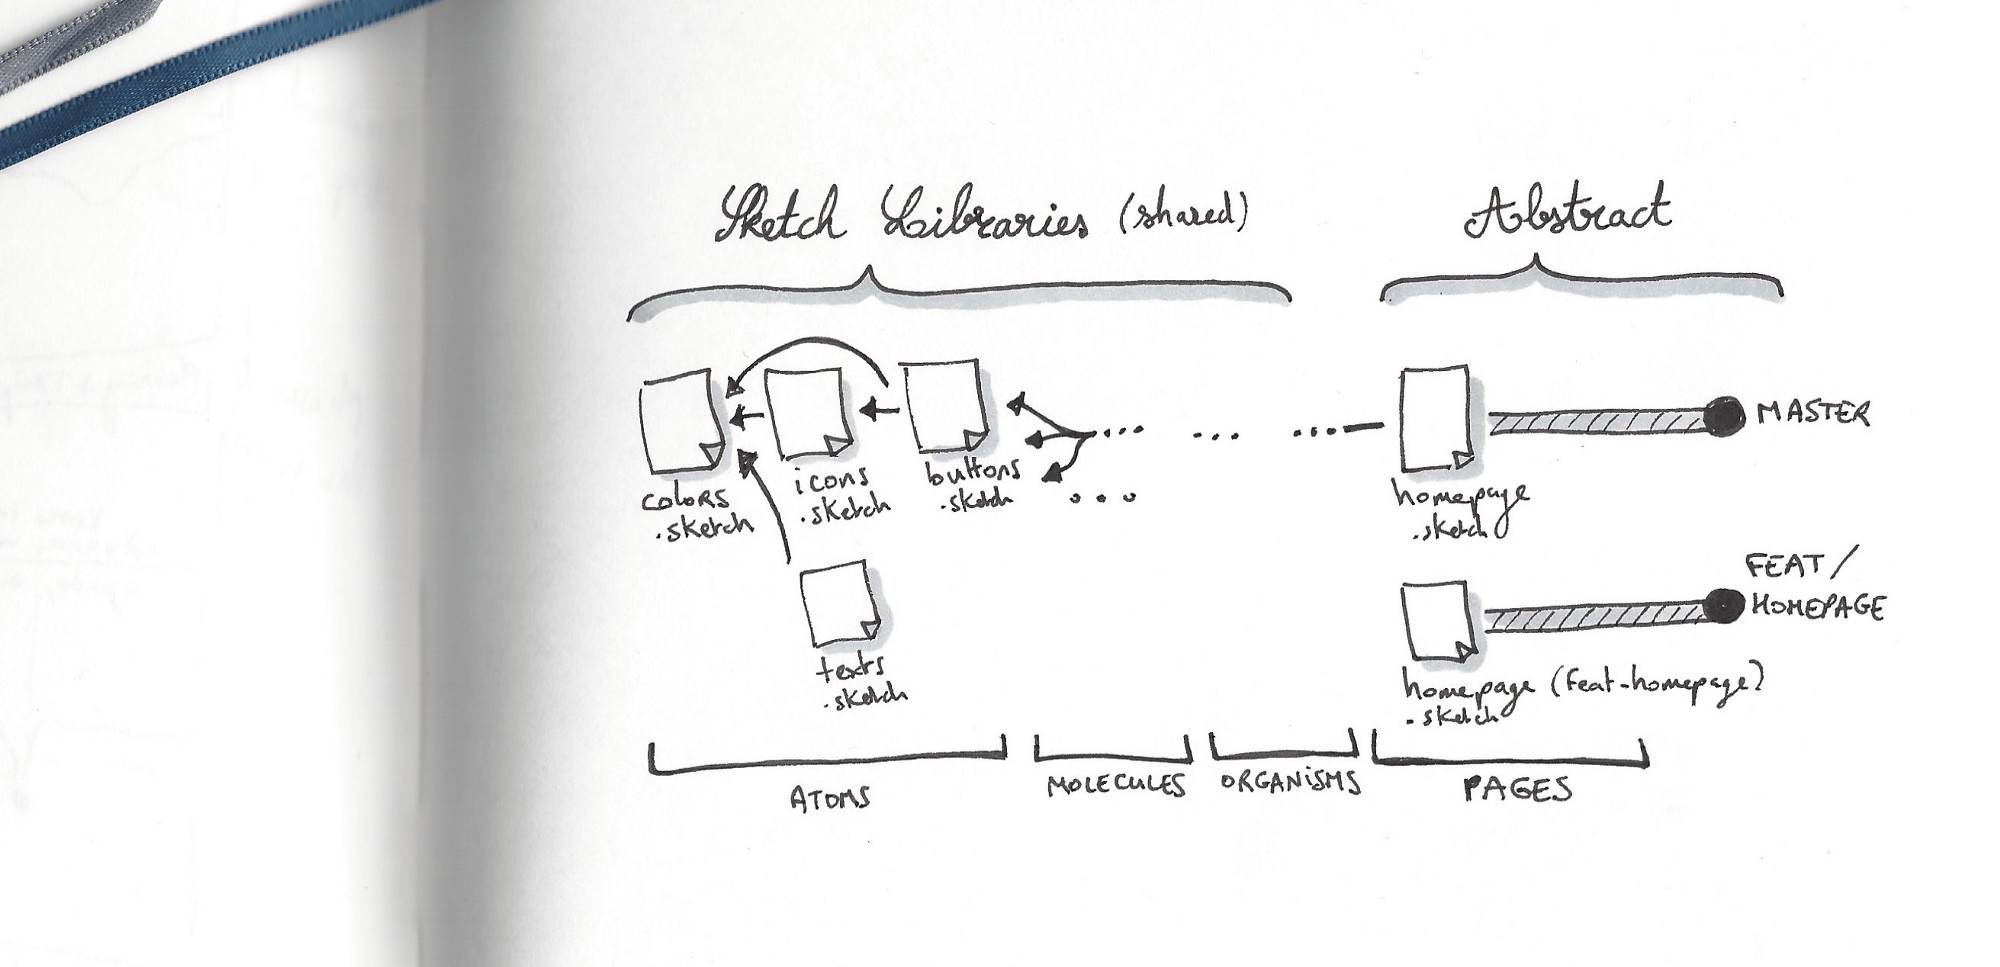 Sketch Libraries (shared)
Abstract
colors
.sketch
icons
.sketch
buttons
.sketch
homepage
.sketch
MASTER
texts
.sketch
homepage (feat-homepage)
.sketch
FEAT/
HOMEPAGE
ATOMS
MOLECULES
ORGANISMS
PAGES